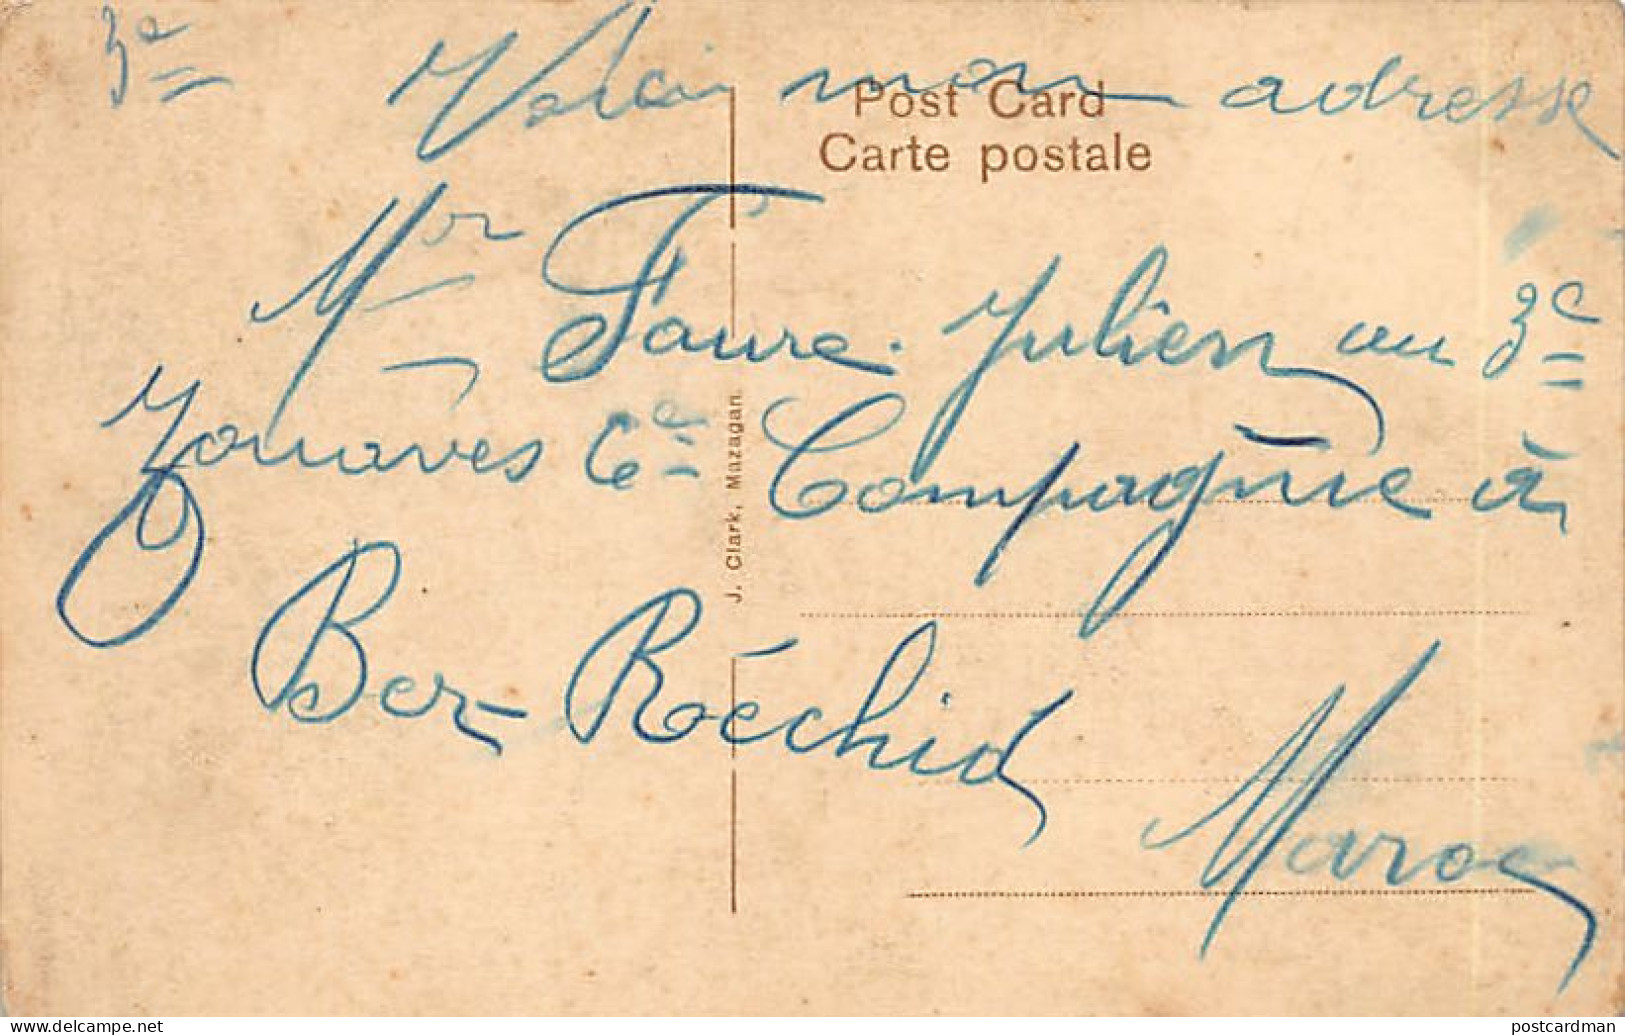 3e Voici mon adresse
Post Card
Carte postale
Mr Faure. Julien au 3e
Zouaves 6e Compagnie à
Ber-Réchid
Maroc
J. Clark, Mazagan.
www.delcampe.net
postcardman